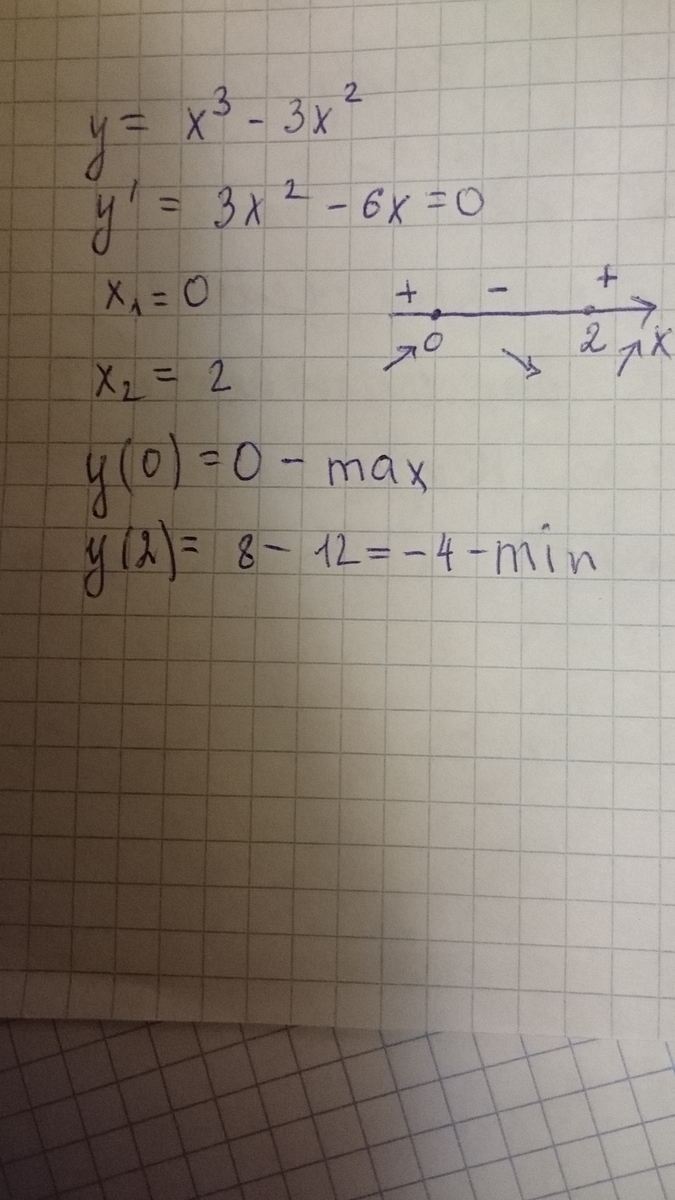 y = x³ - 3x²
y' = 3x² - 6x = 0
x₁ = 0
+ - +
0 2 x
x₂ = 2
y(0) = 0 - max
y(2) = 8 - 12 = -4 - min